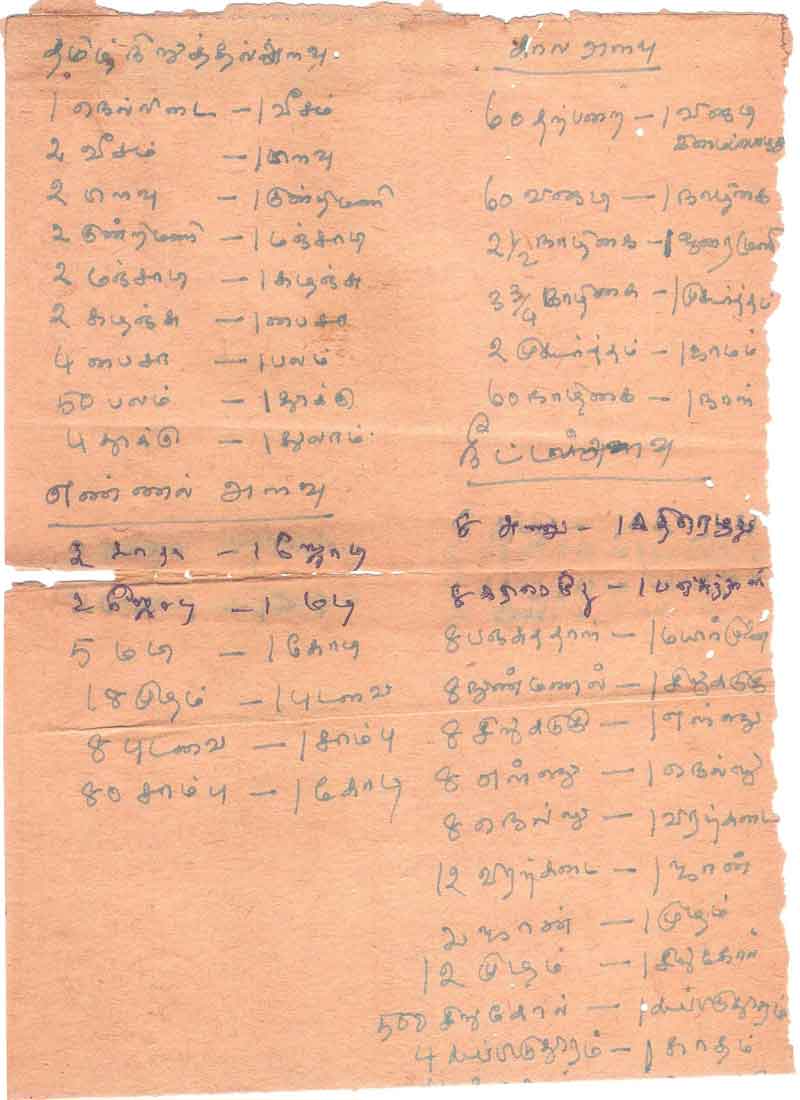 தமிழ் நிறுத்தல் அளவு
1 நெல்லிடை — 1 வீசம்
2 வீசம் — 1 பிளவு
2 பிளவு — 1 குன்றிமணி
2 குன்றிமணி — 1 மஞ்சாடி
2 மஞ்சாடி — 1 கழஞ்சு
2 கழஞ்சு — 1 பைசா
4 பைசா — 1 பலம்
50 பலம் — 1 தூக்கு
4 தூக்கு — 1 துலாம்
எண்ணல் அளவு
2 — 1 ஜோடி
2 ஜோடி — 1 மடி
5 மடி — 1 கோடி
18 முழம் — 1 புடவை
8 புடவை — 1 சாம்பு
80 சாம்பு — 1 கோடி
கால அளவு
60 தற்பரை — 1 விநாடி
60 விநாடி — 1 நாழிகை
2 1/2 நாழிகை — 1
3 3/4 நாழிகை — 1 முகூர்த்தம்
2 முகூர்த்தம் — 1 ஜாமம்
60 நாழிகை — 1 நாள்
நீட்டலளவு
8 அணு — 1
8 — 1
8 பஞ்சுத்தூள் — 1
8 நுண்மணல் — 1 சிறுகடுகு
8 சிறுகடுகு — 1 எள்ளு
8 எள்ளு — 1 நெல்லு
8 நெல்லு — 1 விரற்கடை
12 விரற்கடை — 1 சாண்
2 சாண் — 1 முழம்
12 முழம் — 1 சிறுகோல்
500 சிறுகோல் — 1 கூப்பிடுதூரம்
4 கூப்பிடுதூரம் — 1 காதம்